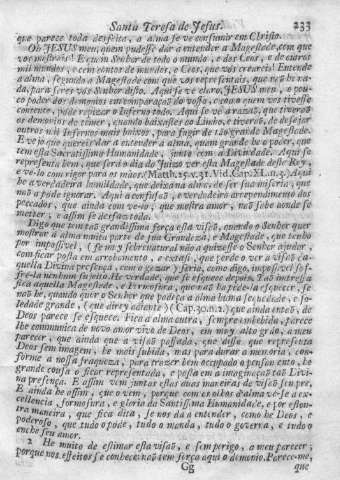 Santa Teresa de Jesus. 233
que parece toda desfeita, e a alma se ve consumir em Christo.
Oh JESUS meu, quem pudesse dar a entender a Magestade, com que
vos mostrais! E quam Senhor de todo o mundo, e dos Ceos, e de outros
mil mundos, e sem conto de mundos, e Ceos, que vós creareis! Entende
a alma, segundo a Magestade com que vos representais, que naõ he na-
da, para seres vós Senhor disso. Aqui se ve claro, JESUS meu, o pou-
co poder dos demonios em comparaçaõ do vosso, e como quem vos tivesse
contente, póde repizar o Inferno todo. Aqui se ve a razaõ, que tiveraõ
os demonios de temer, quando baixastes ao Limbo, e tiveraõ, de desejar
outros mil Infernos mais baixos, para fugir de taõ grande Magestade.
E vejo que quereis dar a entender a alma, quam grande he o poder, que
tem essa Sacratissima Humanidade, junto com a Divindade. Aqui se
representa bem, que será o dia do Juizo ver esta Magestade deste Rey,
e ve-lo com rigor para os máos. (Matth. 25. v. 31. Vid. Cap. XL. n. 3.) Aqui
he a verdadeira humildade, que deixa na alma, de ver sua miseria, que
naõ a póde ignorar. Aqui a confusaõ, e verdadeiro arrependimento dos
peccados, que ainda com ve-lo, que mostra amor, naõ sabe aonde se
metter, e assim se desfaz toda.
Digo que tem taõ grandissima força esta visaõ, quando o Senhor quer
mostrar á alma muita parte de sua Grandeza, e Magestade, que tenho
por impossivel, (se muy sobrenatural naõ a quizesse o Senhor ajudar,
com ficar posta em arrobamento, e extasi, que perde o ver a visaõ da-
quella Divina presença, com o gozar) seria, como digo, impossivel sof-
fre-la nenhum sujeito. He verdade, que se esquece depois. Taõ impressa
fica aquella Magestade, e Fermosura, que naõ ha pode-la esquecer, se
naõ he, quando quer o Senhor que padeça a alma huma sequedade, e so-
ledade grande, (que direy adiante) (Cap. 30. n. 2.) que ainda entaõ, de
Deos parece se esquece. Fica a alma outra, sempre embebida, parece
lhe communica de novo amor vivo de Deos, em muy alto gráo, a meu
parecer, que ainda que a visaõ passada, que disse, que representa
Deos sem imagem, he mais subida, mas para durar a memoria, con-
forme a nossa fraqueza, para trazer bem occupado o pensamento, he
grande cousa o ficar representada, e posta em a imaginaçaõ taõ Divi-
na presença. E assim vem juntas estas duas maneiras de visaõ sempre,
E ainda he assim, que o vem, porque com os olhos d'alma ve-se a ex-
cellencia, formosura, e gloria da Santissima Humanidade, e por estou-
tra maneira, que fica dita, se nos dá a entender, como he Deos, e
poderoso, que tudo o póde, tudo o manda, tudo o governa, e tudo o
enche seu amor.
2 He muito de estimar esta visaõ, e sem perigo, a meu parecer;
porque nos effeitos se conhece naõ tem força aqui o demonio. Parece-me,
Gg que